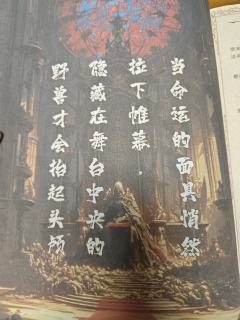 当命运的面具悄然
拉下帷幕，
隐藏在舞台中央的
野兽才会抬起头颅